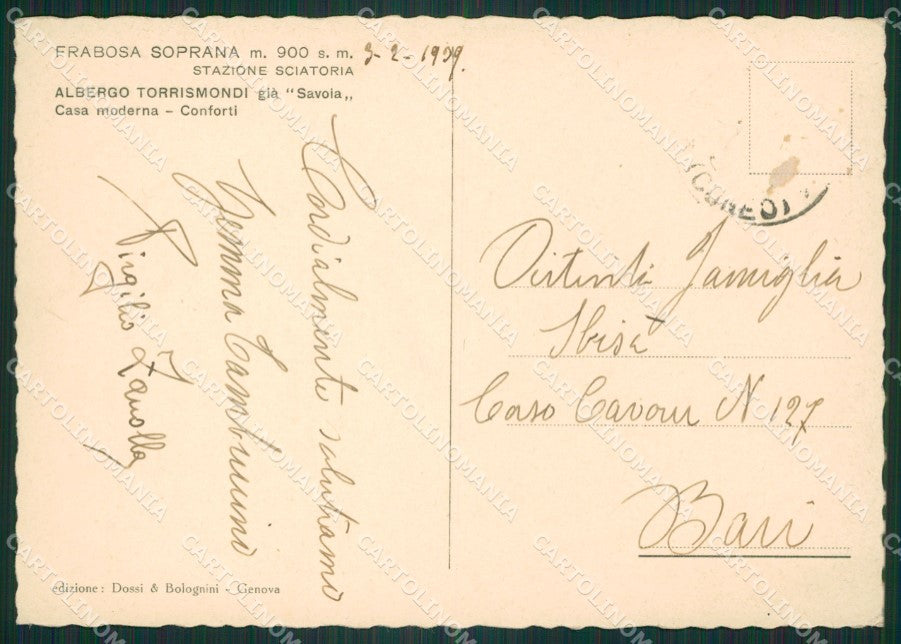 FRABOSA SOPRANA m. 900 s. m. 3-2-1939.
STAZIONE SCIATORIA
ALBERGO TORRISMONDI già "Savoia„
Casa moderna – Conforti
Cordialmente salutiamo
Gemma
Virgilio Zanolla
edizione: Dossi & Bolognini - Genova
Famiglia
Sbisà
Corso Cavour N 127
Bari
CARTOLINOMANIA